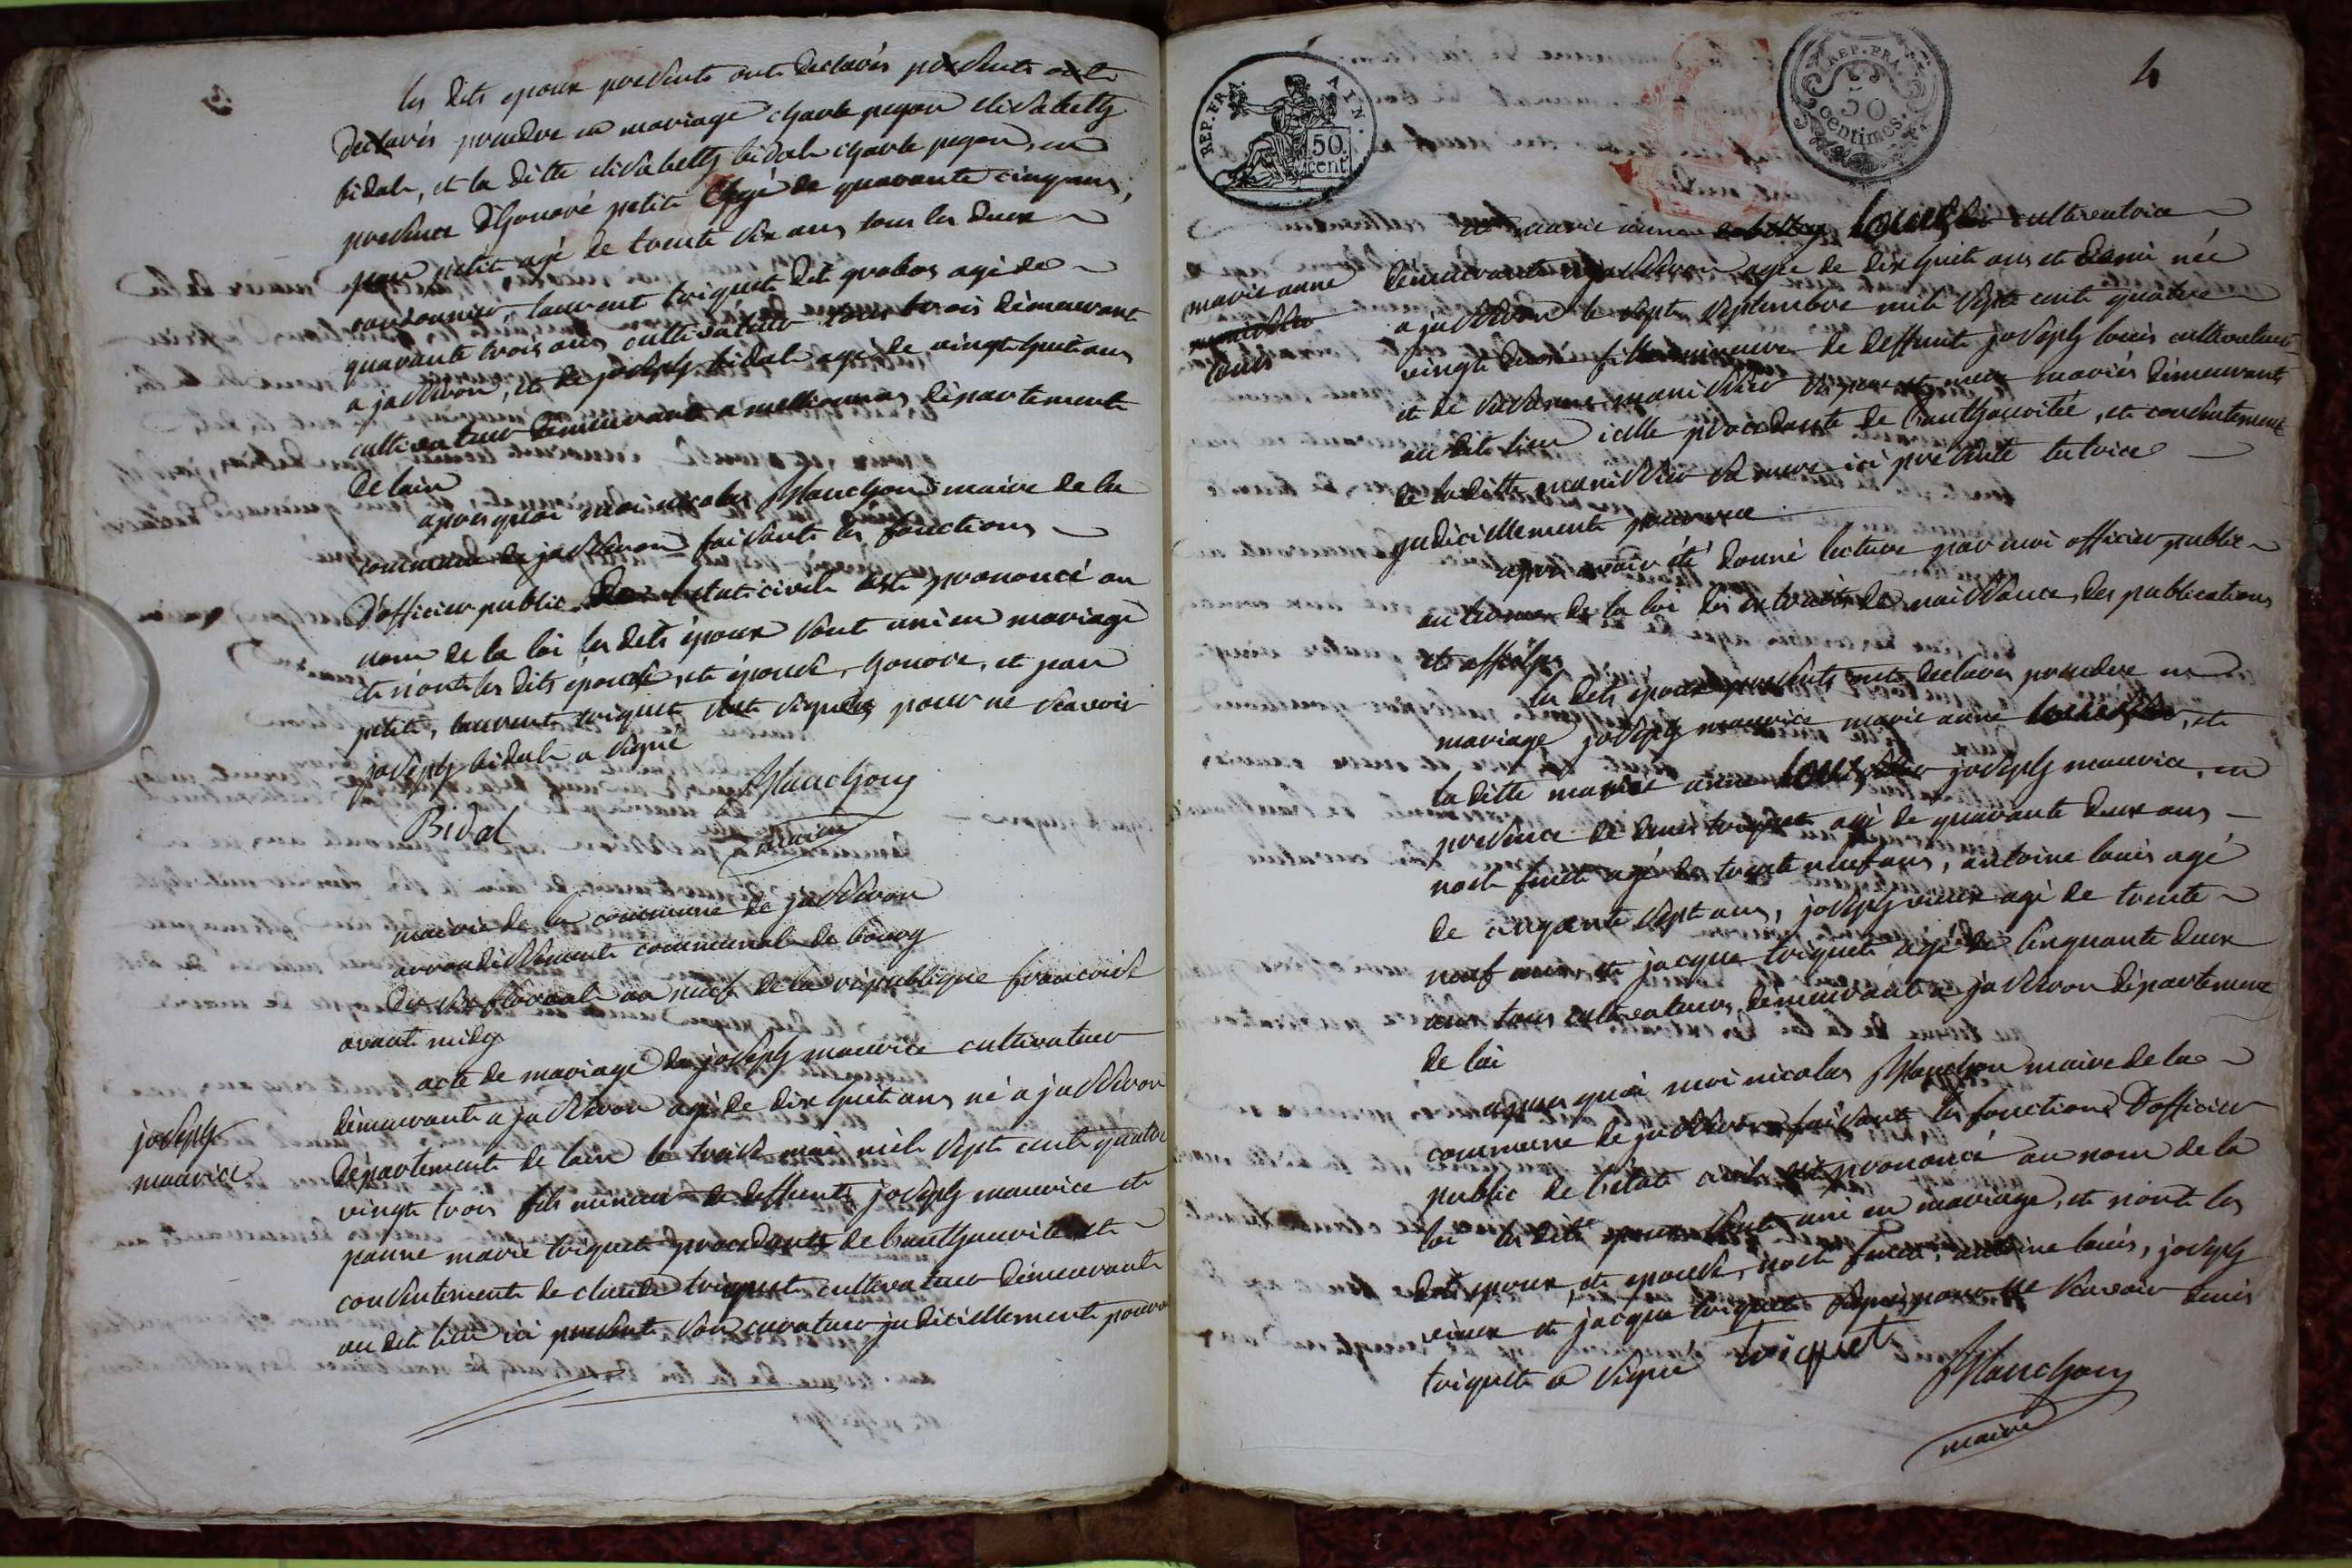 les dits epoux presents ont declarés presents ont
declarés prendre en mariage charle pegon elisabeth
bidal, et la ditte elisabeth bidal charle pegon, en
presence d'honoré petit agé de quarante cinq ans,
petit agé de trente six ans tous les deux
cordonnier, laurent triquet dit grobos agé de
quarante trois ans cultivateur tous trois demeurant
a jasseron, et de joseph bidal age de vingt huit ans
cultivateur demeurant a meillonnas departement
de lain
apres quoi moi nicolas Planchon maire de la
commune de jasseron faisant les fonctions
d'officier public de l'etat civil ait prononcé au
nom de la loi les dits époux sont uni en mariage
et n'ont les dits epoux, et épouse, honoré, et
petit, laurent triquet signés pour ne scavoir
joseph bidal a signé
Planchon
Bidal
maire
mairie de la commune de jasseron
arrondissement communal de bourg
du six floreal an neuf de la republique francoise
avant midy
acte de mariage de joseph maurice cultivateur
joseph
maurice
demeurant a jasseron agé de dix huit ans né a jasseron
departement de lain le treise mai mil sept cent quatre
vingt trois fils mineur de deffunts joseph maurice et
marie triquet procedant de l'authaurité et
consentement de claude triquet cultivateur demeurant
au dit lieu ici present son curateur judiciellement pourvu
REP. FRA. AIN.
50 cent
REP. FRA.
50 centimes.
4
et marie anne louis cultivatrice
marie anne
louis
demeurante a jasseron agée de dix huit ans et demi née
a jasseron le sept septembre mil sept cent quatre
vingt deux fille mineure de deffunt joseph louis cultivateur
et de manissier ses pere et mere mariés demeurants
au dit lieu icelle procedante de l'authaurité, et consentement
de laditte manissier sa mere ici presente tutrice
judiciellement pourvue
apres avoir été donné lecture par moi officier public
au terme de la loi des extraits de naissance, des publications
et affiches
les dits epoux presents ont declarés prendre en
mariage joseph maurice marie anne louis, et
la ditte marie anne louis joseph maurice, en
presence de denis triquet agé de quarante deux ans
noel furet agé de trente neuf ans, antoine louis agé
de cinquante sept ans, joseph vieux agé de trente
neuf ans et jacque triquet agé de cinquante deux
ans tous cultivateurs demeurant a jasseron departement
de lai
apres quoi moi nicolas Planchon maire de la
commune de jasseron faisant les fonctions d'officier
public de l'etat civil ait prononcé au nom de la
loi les dits epoux sont uni en mariage, et n'ont les
dits epoux, et epouse, noel furet, antoine louis, joseph
vieux et jacque triquet signés pour ne scavoir denis
triquet a signé triquet
Planchon
maire